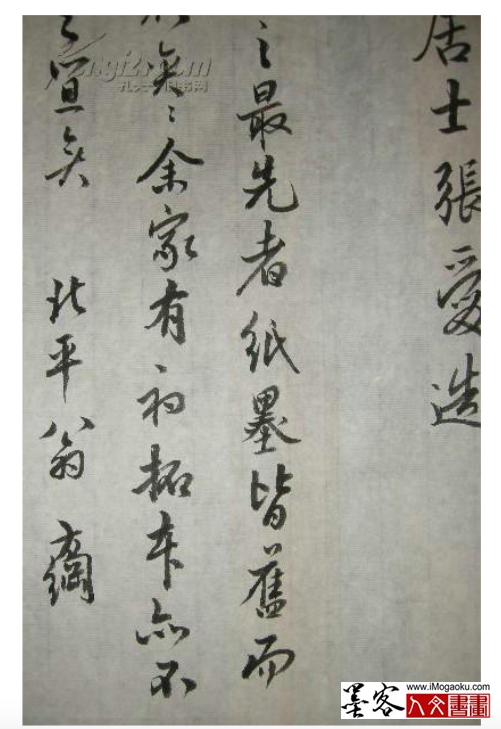 居士張愛造
之最先者紙墨皆舊而
矣〻余家有初拓本亦不
宜矣 北平翁方綱
孔夫子旧书网
www.iMogaoku.com
墨客
人文書畫